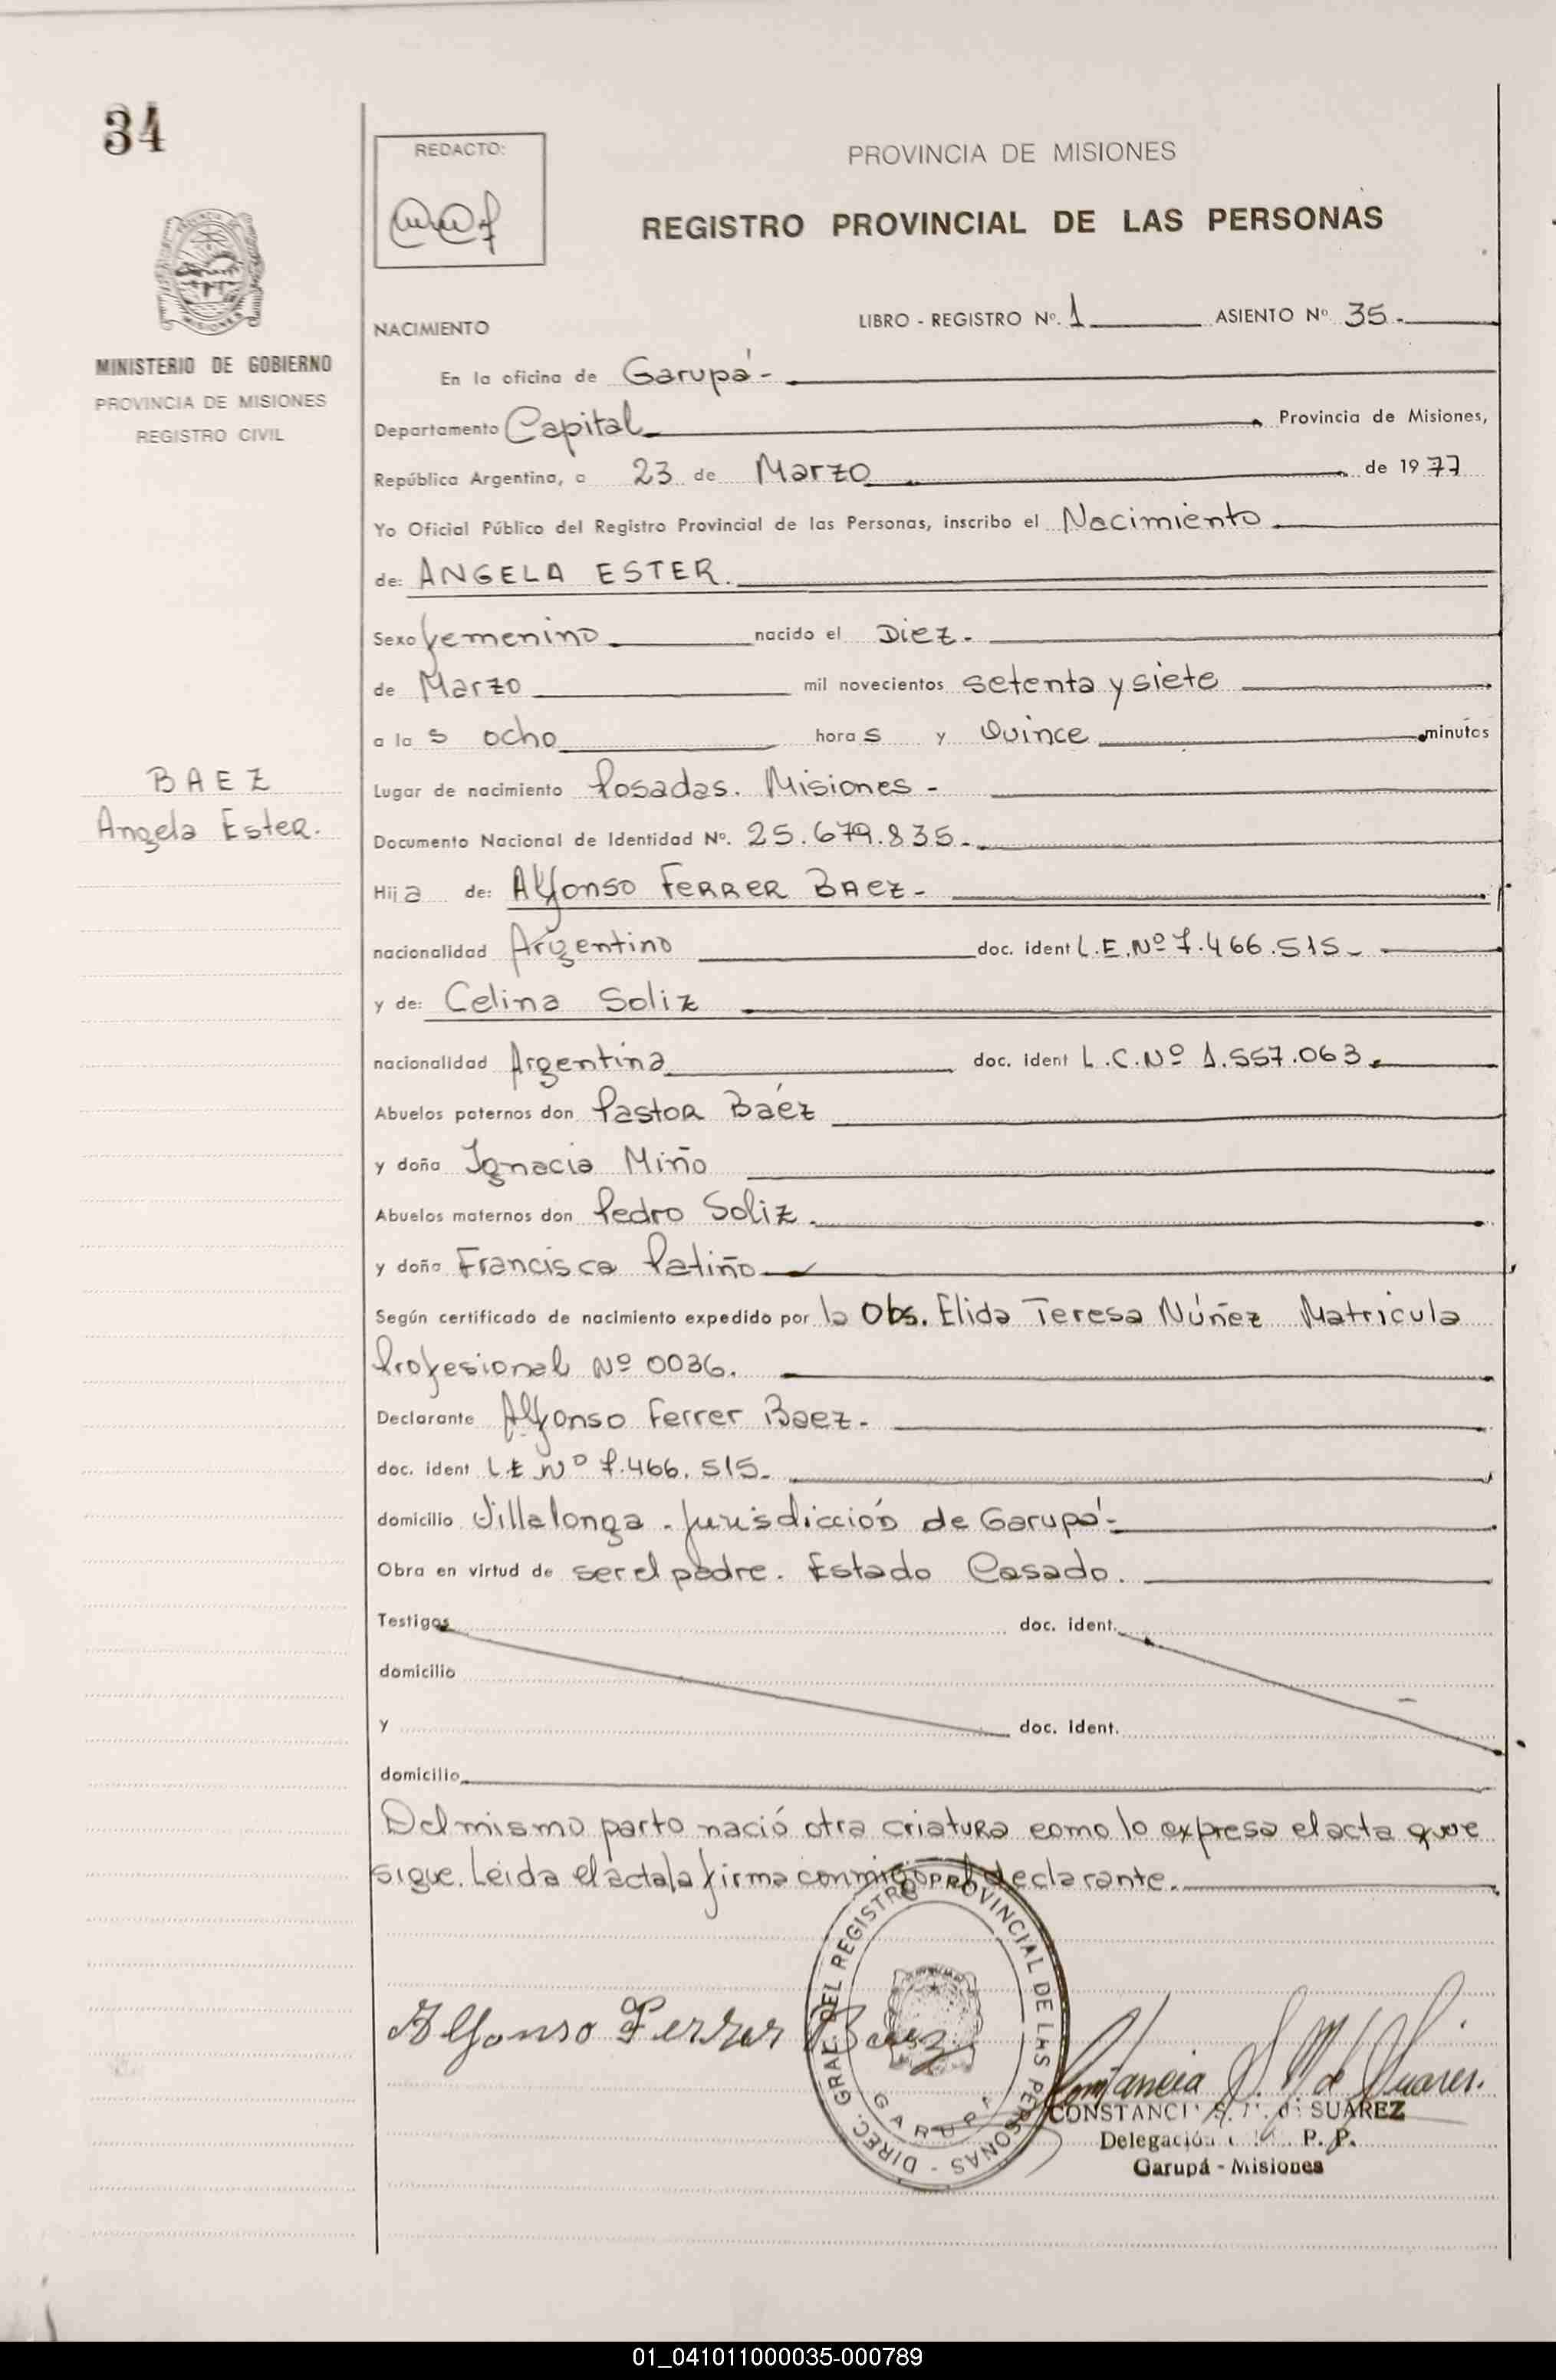 34
REDACTO:
PROVINCIA DE MISIONES
REGISTRO PROVINCIAL DE LAS PERSONAS
MINISTERIO DE GOBIERNO
PROVINCIA DE MISIONES
REGISTRO CIVIL
NACIMIENTO
LIBRO - REGISTRO Nº. 1 ASIENTO Nº 35.-
En la oficina de Garupá-
Departamento Capital Provincia de Misiones,
República Argentina, a 23 de Marzo de 1977
Yo Oficial Público del Registro Provincial de las Personas, inscribo el Nacimiento
de: ANGELA ESTER.
Sexo femenino nacido el Diez.
de Marzo mil novecientos setenta y siete
a las ocho horas y Quince minutos
BAEZ
Angela Ester.
Lugar de nacimiento Posadas. Misiones -
Documento Nacional de Identidad Nº. 25.679.835.-
Hija de: Alfonso FERRER BAEZ-
nacionalidad Argentino doc. ident L.E.Nº 7.466.515-
y de: Celina Soliz
nacionalidad Argentina doc. ident L.C.Nº 1.557.063.
Abuelos paternos don Pastor Báez
y doña Ignacia Miño
Abuelos maternos don Pedro Soliz.
y doña Francisca Patiño
Según certificado de nacimiento expedido por la Obs. Elida Teresa Núñez Matrícula
Profesional Nº 0036.
Declarante Alfonso Ferrer Baez.
doc. ident L.E Nº 7.466.515.
domicilio Villalonga - Jurisdicción de Garupá-
Obra en virtud de ser el padre. Estado Casado.
Testigos doc. ident.
domicilio
y doc. ident.
domicilio
Del mismo parto nació otra criatura como lo expresa el acta que
sigue. Leída el acta la firma conmigo el declarante.
DIREC. GRAL. DEL REGISTRO PROVINCIAL DE LAS PERSONAS -
GARUPA
Alfonso Ferrer Baez
Constancia S. M. de Suarez.
CONSTANCI S. M. d SUAREZ
Delegación P. P.
Garupá - Misiones
01_041011000035-000789